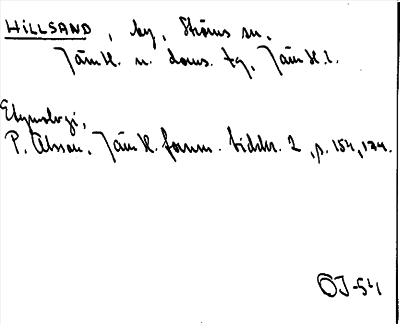 HILLSAND, by, Ströms sn,
Jämtl. n. doms. tg, Jämtl. l.
Etymologi,
P. Olsson, Jämtl. fornm. tidskr. 2, p. 154, 174.
OJ-54